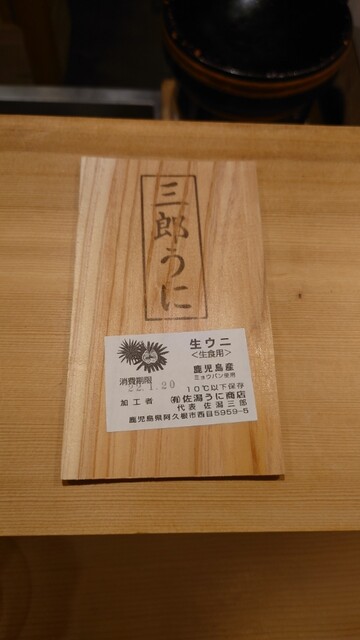 三郎うに
生ウニ
<生食用>
鹿児島産
ミョウバン使用
消費期限
22.1.20
10℃以下保存
加工者 (有)佐潟うに商店
代表 佐潟三郎
鹿児島県阿久根市西目5959-5